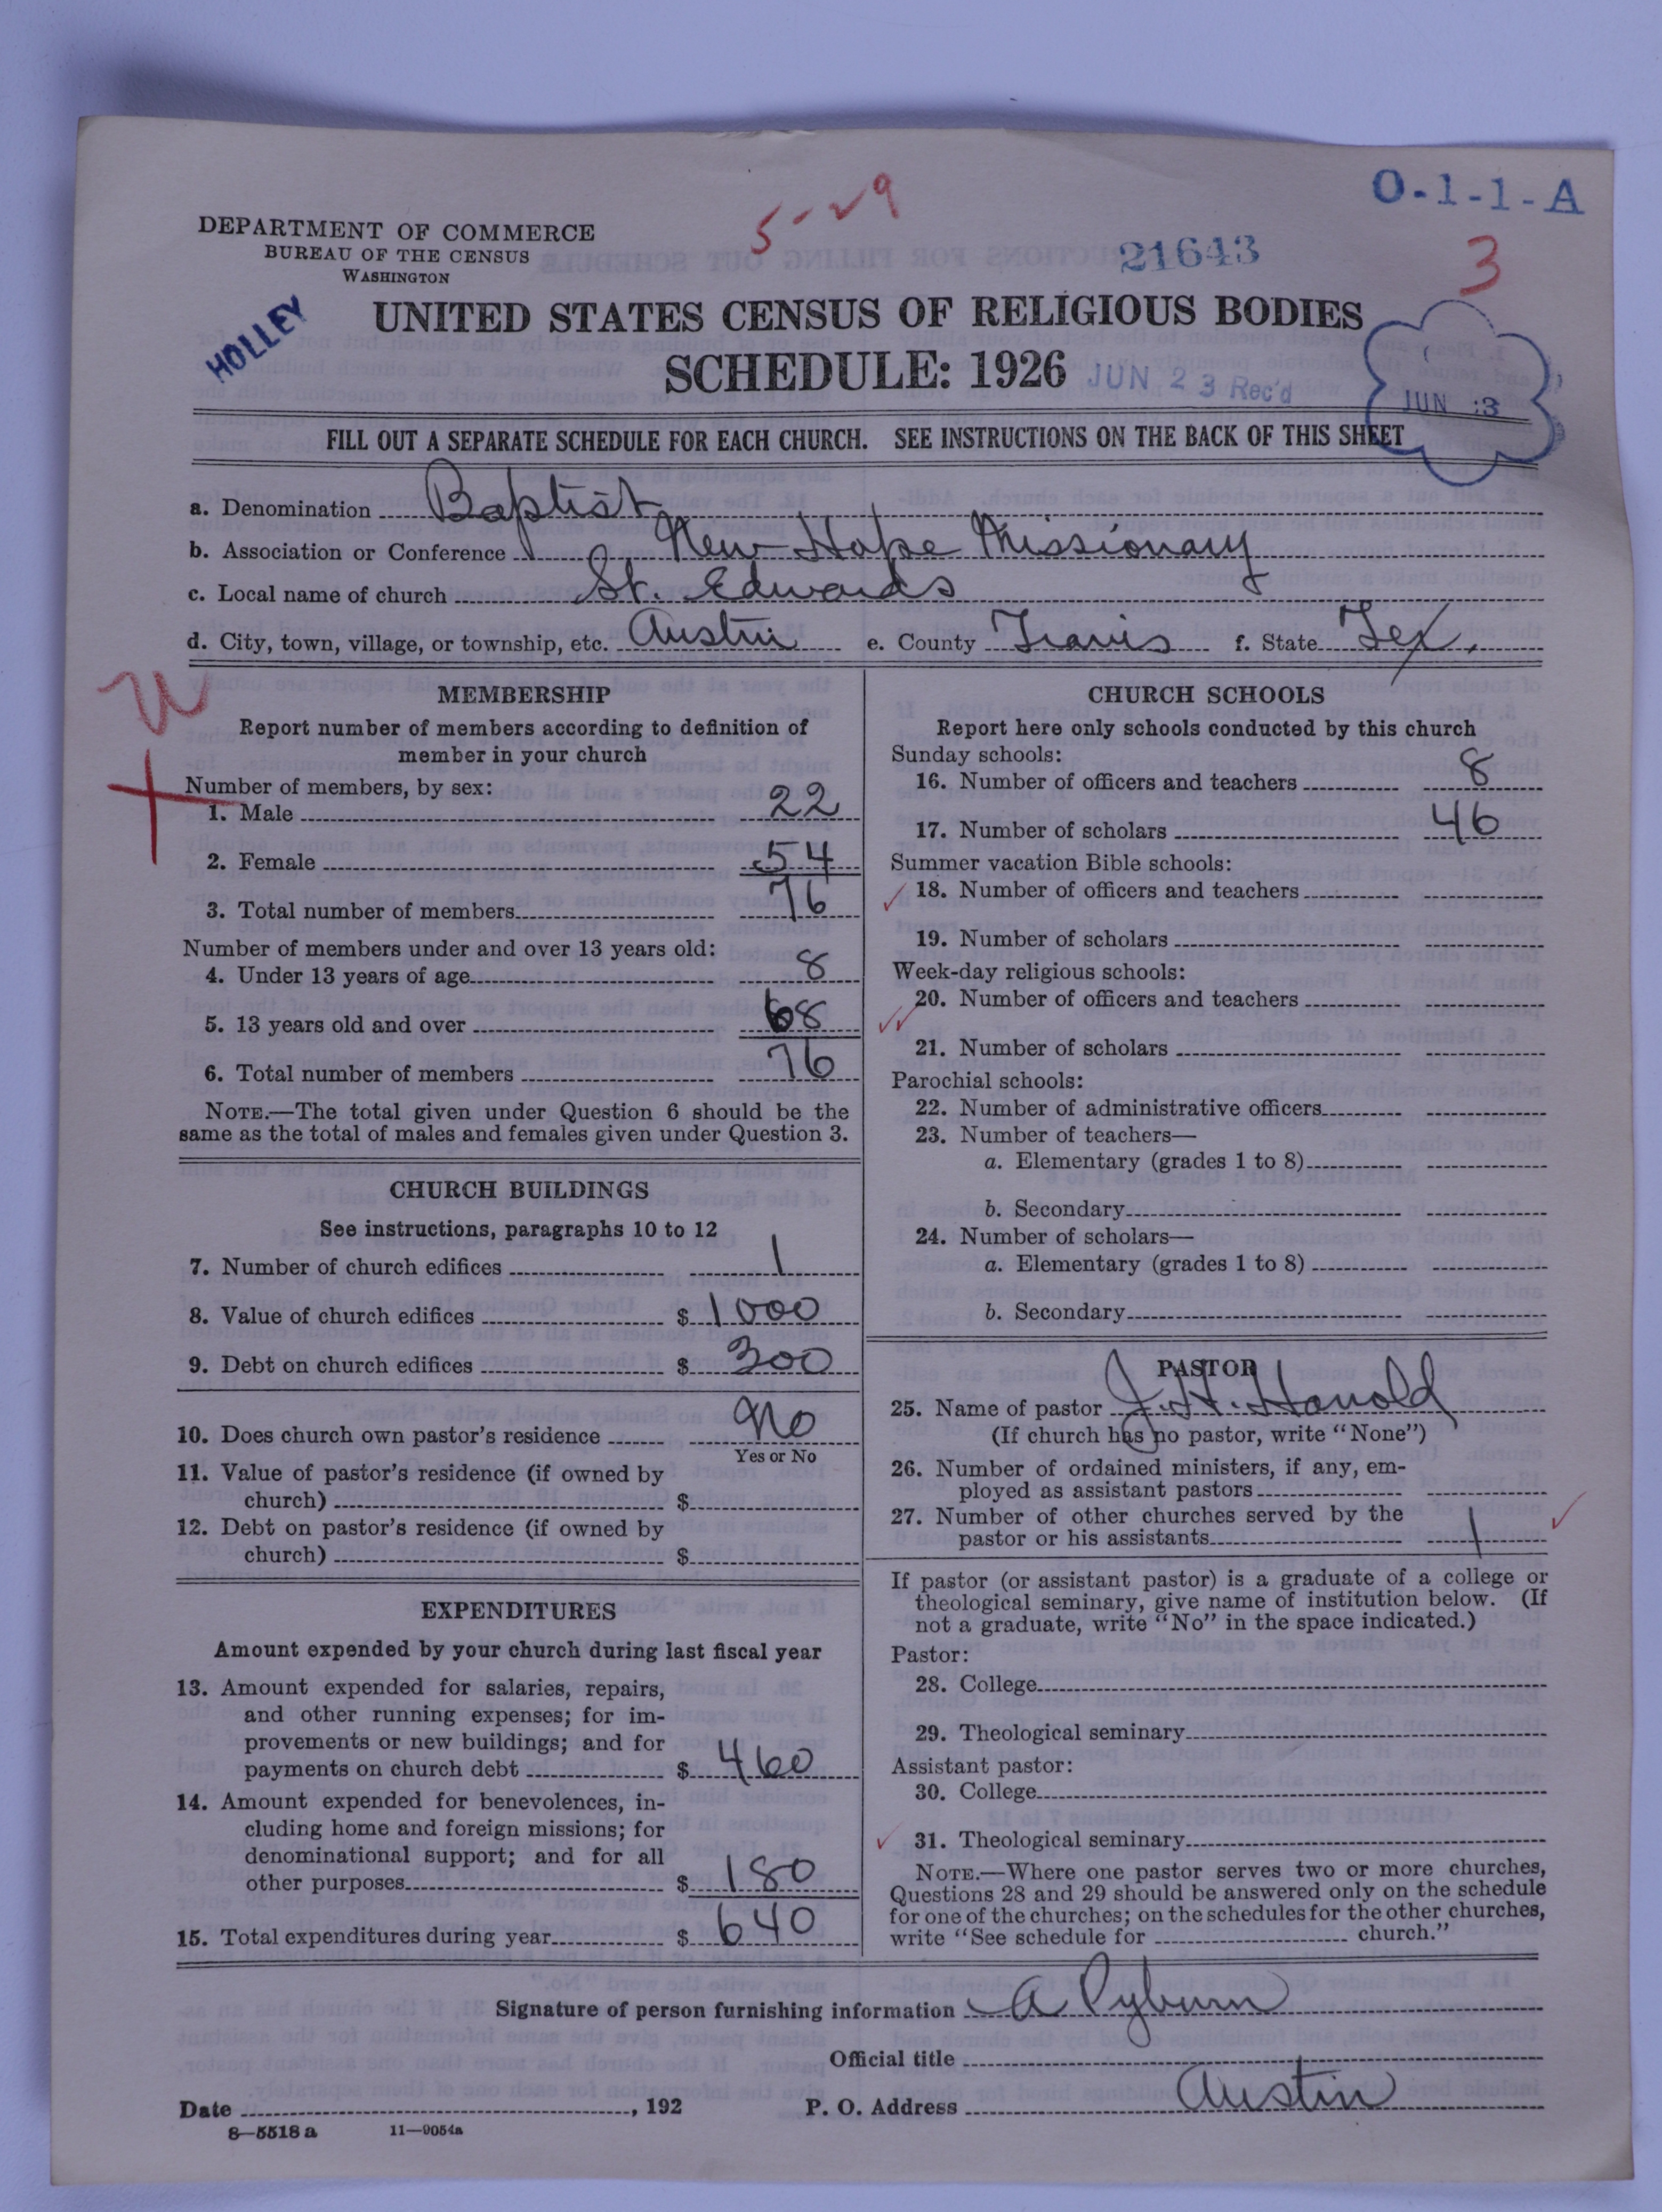 O-1-1-A
5-29
DEPARTMENT OF COMMERCE
BUREAU OF THE CENSUS
WASHINGTON
21643
3
HOLLEY
UNITED STATES CENSUS OF RELIGIOUS BODIES
SCHEDULE: 1926
JUN 23 Rec'd
JUN 3
FILL OUT A SEPARATE SCHEDULE FOR EACH CHURCH. SEE INSTRUCTIONS ON THE BACK OF THIS SHEET
a. Denomination Baptist
b. Association or Conference New Hope Missionary
c. Local name of church St. Edwards
d. City, town, village, or township, etc. Austin e. County Travis f. State Tex.
MEMBERSHIP
Report number of members according to definition of
member in your church
Number of members, by sex:
1. Male 22
2. Female 54
3. Total number of members 76
Number of members under and over 13 years old:
4. Under 13 years of age 8
5. 13 years old and over 68
6. Total number of members 76
NOTE.—The total given under Question 6 should be the
same as the total of males and females given under Question 3.
CHURCH BUILDINGS
See instructions, paragraphs 10 to 12
7. Number of church edifices 1
8. Value of church edifices $ 1000
9. Debt on church edifices $ 300
10. Does church own pastor's residence No
Yes or No
11. Value of pastor's residence (if owned by
church) $
12. Debt on pastor's residence (if owned by
church) $
EXPENDITURES
Amount expended by your church during last fiscal year
13. Amount expended for salaries, repairs,
and other running expenses; for im-
provements or new buildings; and for
payments on church debt $ 460
14. Amount expended for benevolences, in-
cluding home and foreign missions; for
denominational support; and for all
other purposes $ 180
15. Total expenditures during year $ 640
CHURCH SCHOOLS
Report here only schools conducted by this church
Sunday schools:
16. Number of officers and teachers 8
17. Number of scholars 46
Summer vacation Bible schools:
18. Number of officers and teachers
19. Number of scholars
Week-day religious schools:
20. Number of officers and teachers
21. Number of scholars
Parochial schools:
22. Number of administrative officers
23. Number of teachers—
a. Elementary (grades 1 to 8)
b. Secondary
24. Number of scholars—
a. Elementary (grades 1 to 8)
b. Secondary
PASTOR
25. Name of pastor J. H. Harrold
(If church has no pastor, write "None")
26. Number of ordained ministers, if any, em-
ployed as assistant pastors
27. Number of other churches served by the
pastor or his assistants 1
If pastor (or assistant pastor) is a graduate of a college or
theological seminary, give name of institution below. (If
not a graduate, write "No" in the space indicated.)
Pastor:
28. College
29. Theological seminary
Assistant pastor:
30. College
31. Theological seminary
NOTE.—Where one pastor serves two or more churches,
Questions 28 and 29 should be answered only on the schedule
for one of the churches; on the schedules for the other churches,
write "See schedule for church."
Signature of person furnishing information A Pyburn
Official title
Date , 192 P. O. Address Austin
8-5518 a 11-9054a